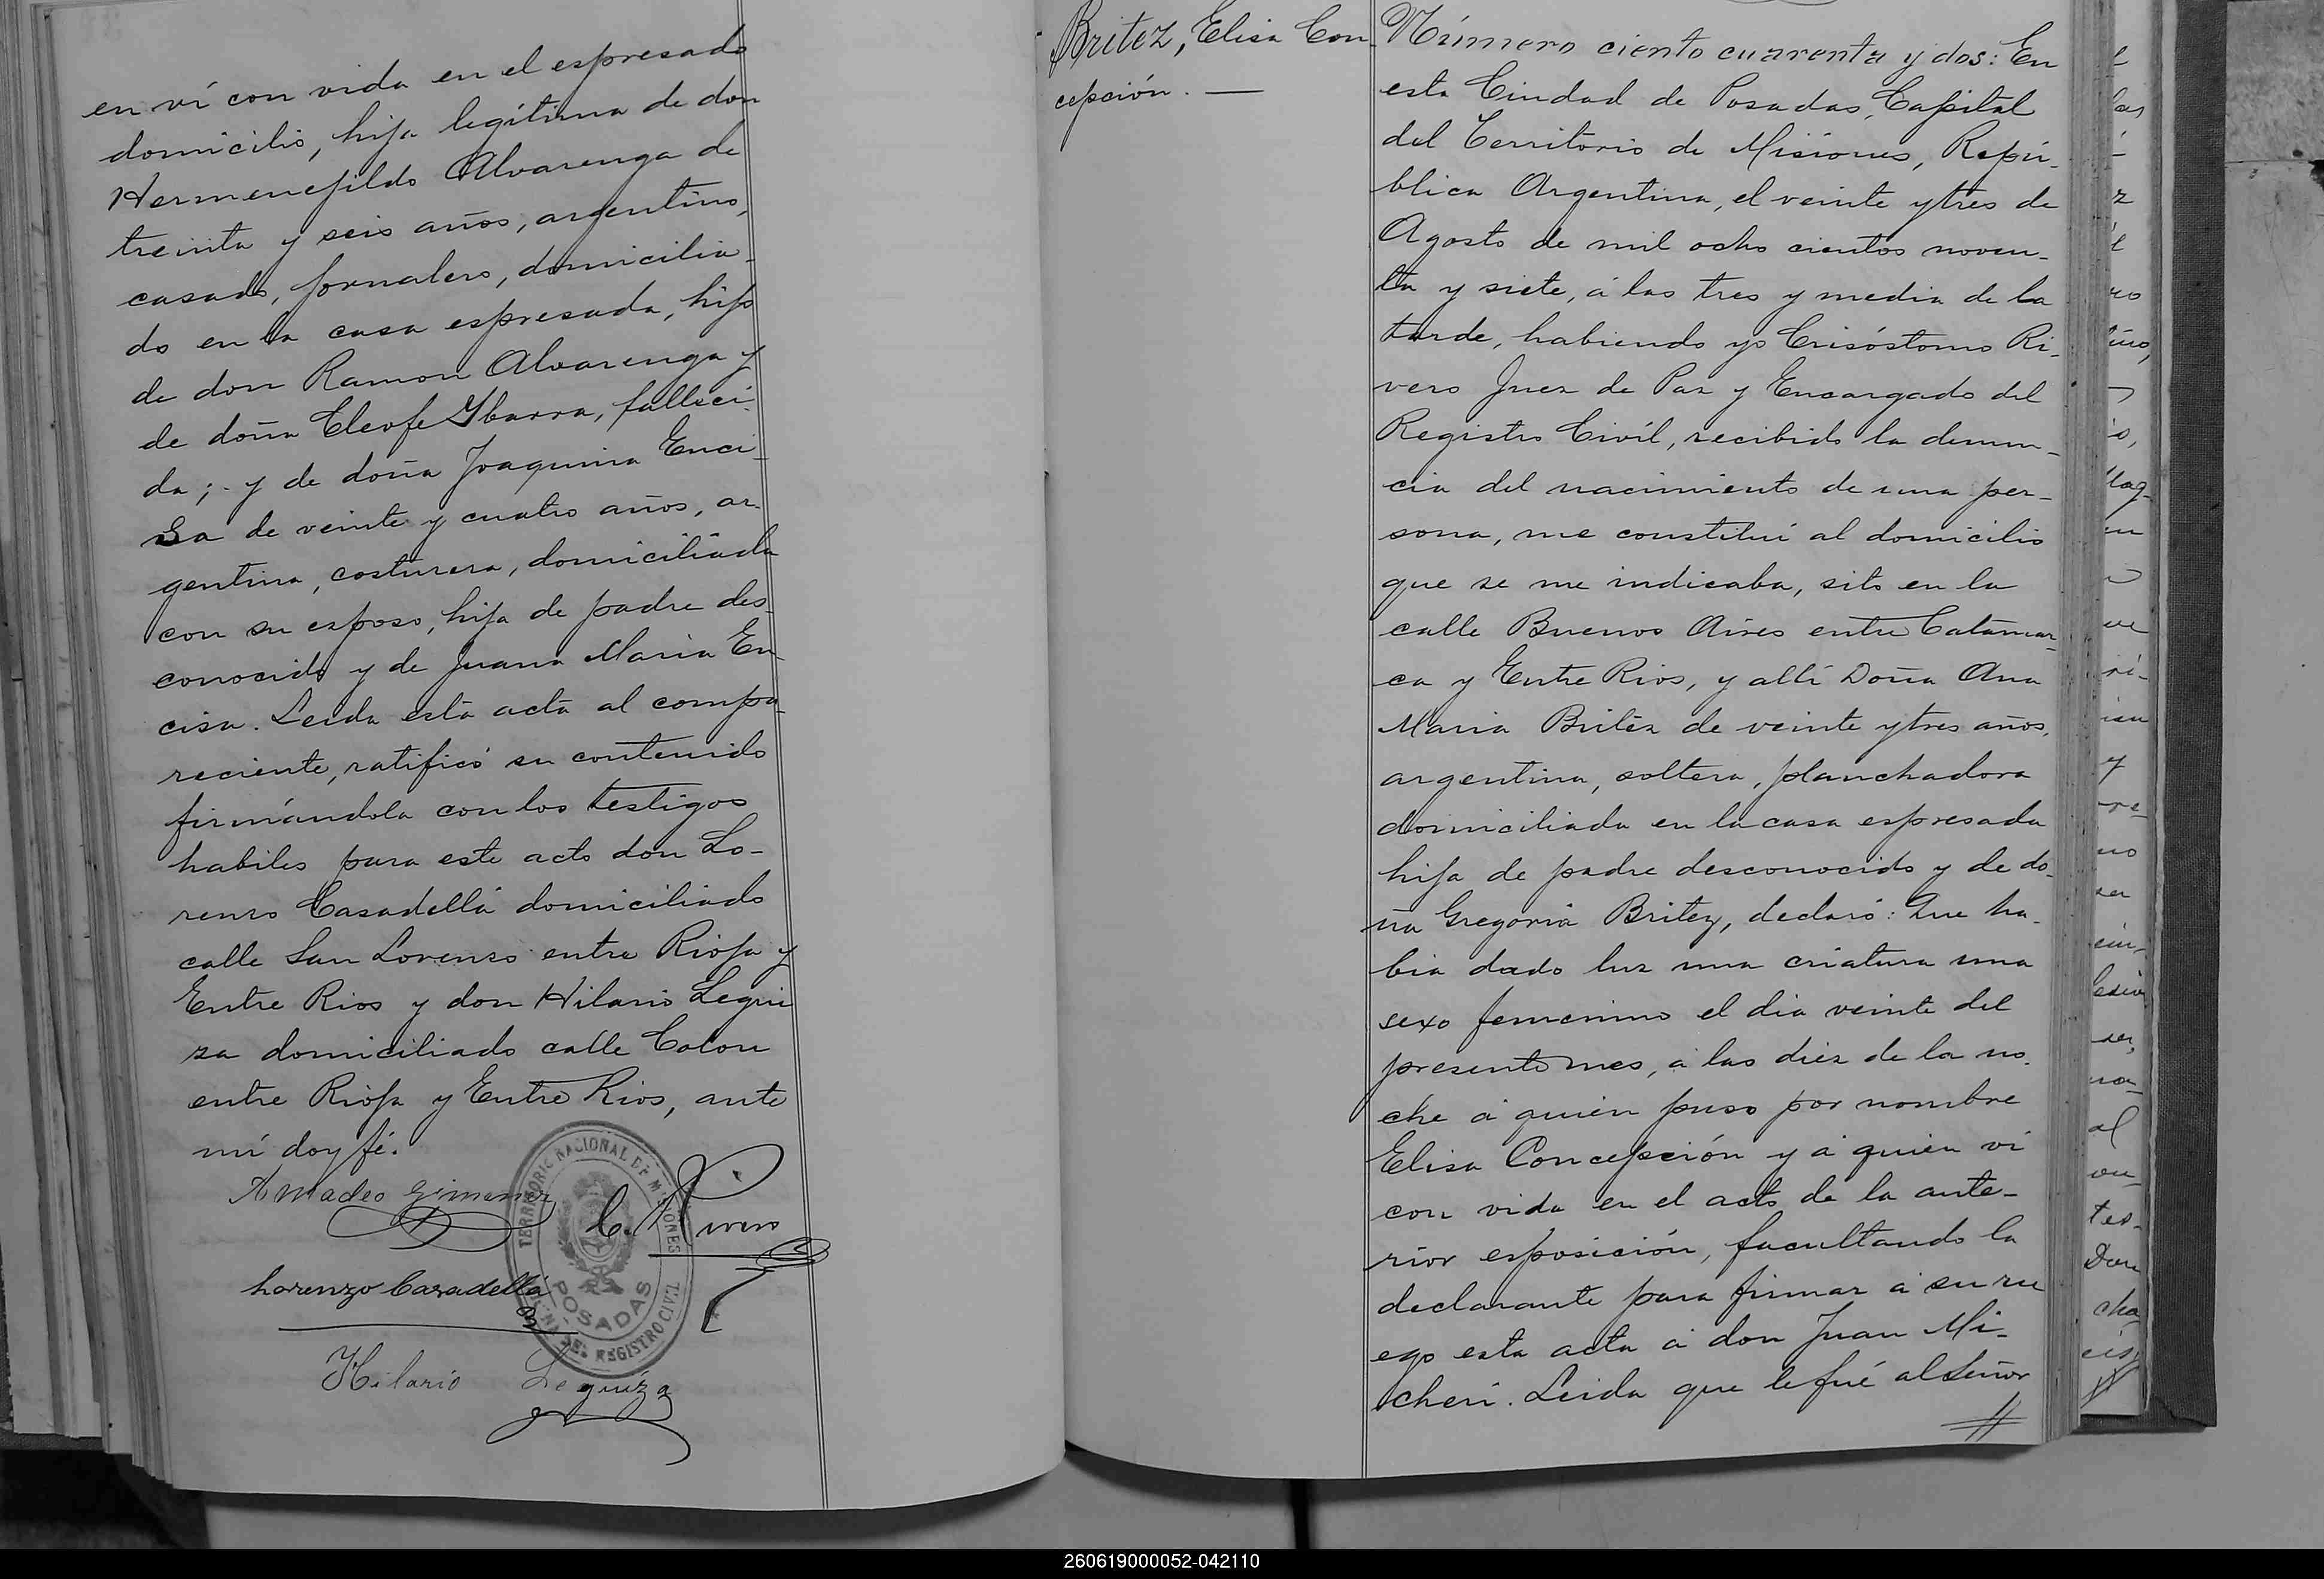 en ví con vida en el espresado
domicilio, hija legítima de don
Hermenejildo Alvarenga de
treinta y seis años, argentino,
casado, jornalero, domicilia-
do en la casa espresada, hijo
de don Ramon Alvarenga y
de doña Cleofe Ybarra, falleci-
da; y de doña Joaquina Enci-
sa de veinte y cuatro años, ar-
gentina, costurera, domiciliada
con su esposo, hija de padre des-
conocido y de Juana Maria En-
cisa. Leida esta acta al compa-
reciente, ratificó su contenido
firmándola con los testigos
habiles para este acto don Lo-
renzo Casadellá domiciliado
calle San Lorenzo entre Rioja y
Entre Rios y don Hilario Legui
za domiciliado calle Colon
entre Rioja y Entre Rios, ante
mí doy fé.
Amadeo Gimenez
C. Rivero
Lorenzo Casadellá
Hilario Leguiza
TERRITORIO NACIONAL DE MISIONES
POSADAS
OFICINA DEL REGISTRO CIVIL
Britez, Elisa Con-
cepción. —
Número ciento cuarenta y dos: En
esta Ciudad de Posadas, Capital
del Territorio de Misiones, Repú-
blica Argentina, el veinte y tres de
Agosto de mil ocho cientos noven-
ta y siete, á las tres y media de la
tarde, habiendo yo Crisóstomo Ri-
vero Juez de Paz y Encargado del
Registro Civíl, recibido la denun-
cia del nacimiento de una per-
sona, me constituí al domicilio
que se me indicaba, sito en la
calle Buenos Aires entre Catamar-
ca y Entre Rios, y allí Doña Ana
Maria Britéz de veinte y tres años,
argentina, soltera, planchadora
domiciliada en la casa espresada
hija de padre desconocido y de do-
ña Gregoria Britez, declaró: Que ha-
bia dado luz una criatura una
sexo femenino el dia veinte del
presente mes, á las diez de la no-
che á quien puso por nombre
Elisa Concepción y á quien ví
con vida en el acto de la ante-
rior esposición, facultando la
declarante para firmar á su ru
ego esta acta á don Juan Mi-
cheri. Leida que le fué al Señor
260619000052-042110